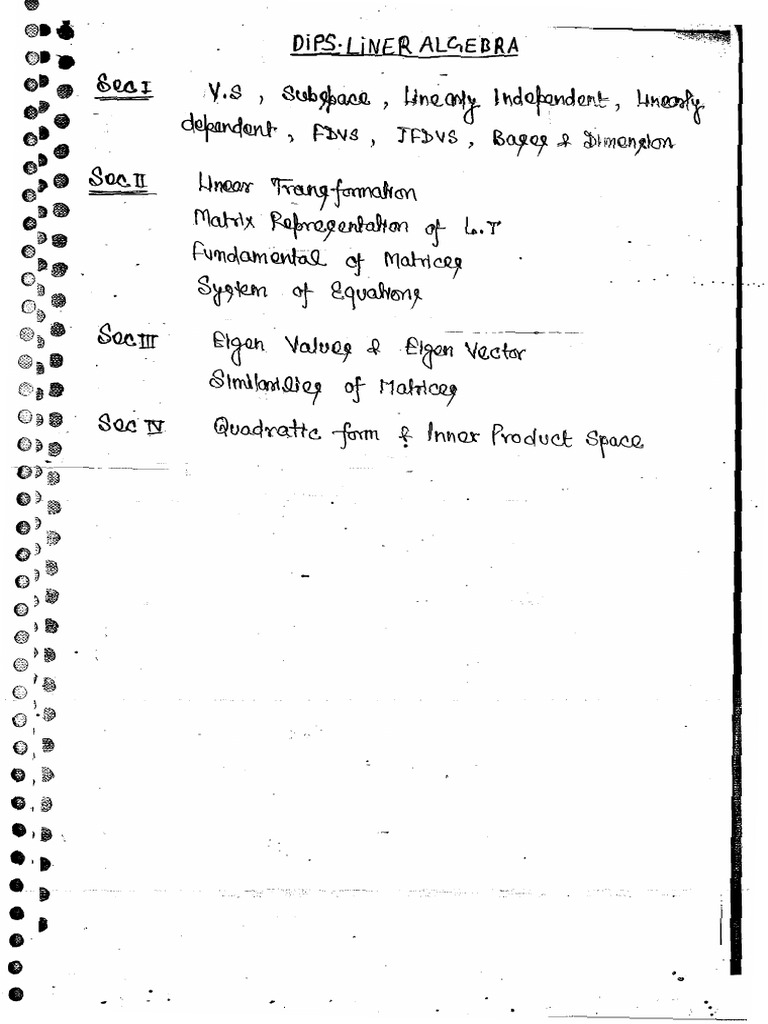 DIPS. LINER ALGEBRA
Sec I V.S, Subspace, Linearly Independent, Linearly
dependent, FDVS, IFDVS, Bases & Dimension
Sec II Linear Transformation
Matrix Representation of L.T
Fundamental of Matrices
System of Equations
Sec III Eigen Values & Eigen Vector
Similarities of Matrices
Sec IV Quadratic form & Inner Product Space